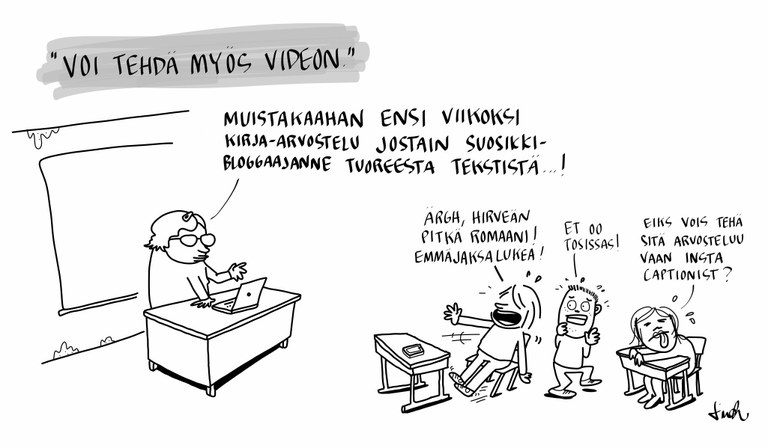 "VOI TEHDÄ MYÖS VIDEON."
MUISTAKAAHAN ENSI VIIKOKSI
KIRJA-ARVOSTELU JOSTAIN SUOSIKKI-
BLOGGAAJANNE TUOREESTA TEKSTISTÄ...!
ÄRGH, HIRVEÄN
PITKÄ ROMAANI!
EMMÄJAKSA LUKEA!
ET OO
TOSISSAS!
EIKS VOIS TEHÄ
SITÄ ARVOSTELUU
VAAN INSTA
CAPTIONIST?